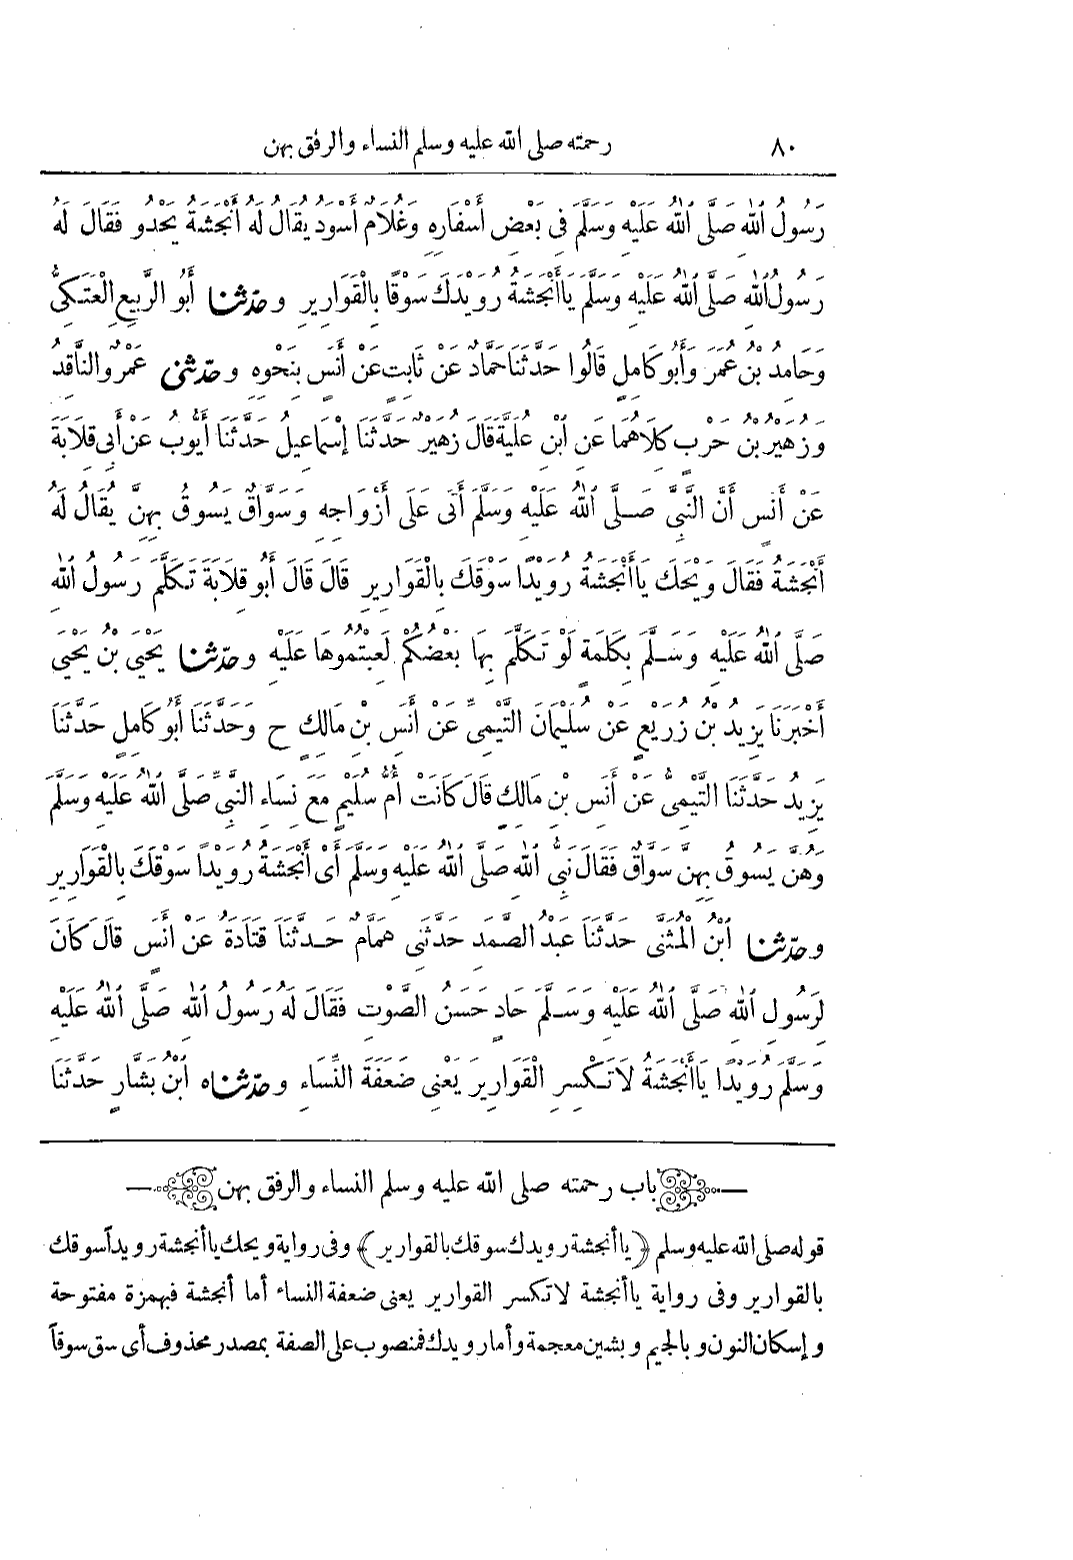 ٨٠ رحمته صلى الله عليه وسلم النساء والرفق بهن
رَسُولُ اللهِ صَلَّى اللهُ عَلَيْهِ وَسَلَّمَ فِى بَعْضِ أَسْفَارِهِ وَغُلَامٌ أَسْوَدُ يُقَالُ لَهُ أَنْجَشَةُ يَحْدُو فَقَالَ لَهُ
رَسُولُ اللهِ صَلَّى اللهُ عَلَيْهِ وَسَلَّمَ يَا أَنْجَشَةُ رُوَيْدَكَ سَوْقًا بِالْقَوَارِيرِ و حدّثنا أَبُو الرَّبِيعِ الْعَتَكِىُّ
وَحَامِدُ بْنُ عُمَرَ وَأَبُو كَامِلٍ قَالُوا حَدَّثَنَا حَمَّادٌ عَنْ ثَابِتٍ عَنْ أَنَسٍ بِنَحْوِهِ و حدّثنى عَمْرٌو النَّاقِدُ
وَزُهَيْرُ بْنُ حَرْبٍ كِلَاهُمَا عَنِ ابْنِ عُلَيَّةَ قَالَ زُهَيْرٌ حَدَّثَنَا إِسْمَاعِيلُ حَدَّثَنَا أَيُّوبُ عَنْ أَبِى قِلَابَةَ
عَنْ أَنَسٍ أَنَّ النَّبِىَّ صَلَّى اللهُ عَلَيْهِ وَسَلَّمَ أَتَى عَلَى أَزْوَاجِهِ وَسَوَّاقٌ يَسُوقُ بِهِنَّ يُقَالُ لَهُ
أَنْجَشَةُ فَقَالَ وَيْحَكَ يَا أَنْجَشَةُ رُوَيْدًا سَوْقَكَ بِالْقَوَارِيرِ قَالَ قَالَ أَبُو قِلَابَةَ تَكَلَّمَ رَسُولُ اللهِ
صَلَّى اللهُ عَلَيْهِ وَسَلَّمَ بِكَلِمَةٍ لَوْ تَكَلَّمَ بِهَا بَعْضُكُمْ لَعِبْتُمُوهَا عَلَيْهِ و حدّثنا يَحْيَى بْنُ يَحْيَى
أَخْبَرَنَا يَزِيدُ بْنُ زُرَيْعٍ عَنْ سُلَيْمَانَ التَّيْمِىِّ عَنْ أَنَسِ بْنِ مَالِكٍ ح وَحَدَّثَنَا أَبُو كَامِلٍ حَدَّثَنَا
يَزِيدُ حَدَّثَنَا التَّيْمِىُّ عَنْ أَنَسِ بْنِ مَالِكٍ قَالَ كَانَتْ أُمُّ سُلَيْمٍ مَعَ نِسَاءِ النَّبِىِّ صَلَّى اللهُ عَلَيْهِ وَسَلَّمَ
وَهُنَّ يَسُوقُ بِهِنَّ سَوَّاقٌ فَقَالَ نَبِىُّ اللهِ صَلَّى اللهُ عَلَيْهِ وَسَلَّمَ أَىْ أَنْجَشَةُ رُوَيْدًا سَوْقَكَ بِالْقَوَارِيرِ
و حدّثنا ابْنُ الْمُثَنَّى حَدَّثَنَا عَبْدُ الصَّمَدِ حَدَّثَنِى هَمَّامٌ حَدَّثَنَا قَتَادَةُ عَنْ أَنَسٍ قَالَ كَانَ
لِرَسُولِ اللهِ صَلَّى اللهُ عَلَيْهِ وَسَلَّمَ حَادٍ حَسَنُ الصَّوْتِ فَقَالَ لَهُ رَسُولُ اللهِ صَلَّى اللهُ عَلَيْهِ
وَسَلَّمَ رُوَيْدًا يَا أَنْجَشَةُ لَا تَكْسِرِ الْقَوَارِيرَ يَعْنِى ضَعَفَةَ النِّسَاءِ و حدّثناه ابْنُ بَشَّارٍ حَدَّثَنَا
باب رحمته صلى الله عليه وسلم النساء والرفق بهن
قوله صلى الله عليه وسلم ﴿يا أنجشة رويدك سوقك بالقوارير﴾ وفى رواية ويحك يا أنجشة رويداً سوقك
بالقوارير وفى رواية يا أنجشة لا تكسر القوارير يعنى ضعفة النساء أما أنجشة فبهمزة مفتوحة
وإسكان النون وبالجيم وبشين معجمة وأما رويدك فمنصوب على الصفة بمصدر محذوف أى سق سوقاً